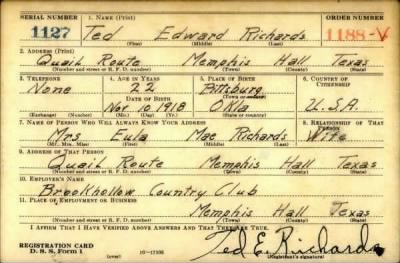 SERIAL NUMBER 1. NAME (Print) ORDER NUMBER
1127 Ted Edward Richards 1188-V
(First) (Middle) (Last)
2. ADDRESS (Print)
Quail Route Memphis Hall Texas
(Number and street or R. F. D. number) (Town) (County) (State)
3. TELEPHONE 4. AGE IN YEARS 5. PLACE OF BIRTH 6. COUNTRY OF CITIZENSHIP
None 22 Pittsburg
DATE OF BIRTH (Town or county)
Nov. 10 1918 Okla U.S.A.
(Exchange) (Number) (Mo.) (Day) (Yr.) (State or country)
7. NAME OF PERSON WHO WILL ALWAYS KNOW YOUR ADDRESS 8. RELATIONSHIP OF THAT PERSON
Mrs Eula Mae Richards Wife
(Mr., Mrs., Miss) (First) (Middle) (Last)
9. ADDRESS OF THAT PERSON
Quail Route Memphis Hall Texas
(Number and street or R. F. D. number) (Town) (County) (State)
10. EMPLOYER'S NAME
Brookhollow Country Club
11. PLACE OF EMPLOYMENT OR BUSINESS
Memphis Hall Texas
(Number and street or R. F. D. number) (Town) (County) (State)
I AFFIRM THAT I HAVE VERIFIED ABOVE ANSWERS AND THAT THEY ARE TRUE.
REGISTRATION CARD
D. S. S. Form 1 (over) 16-17105 Ted E. Richards
(Registrant's signature)